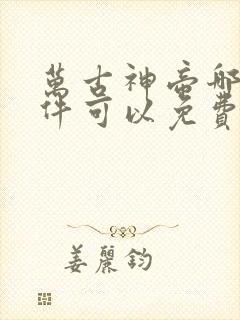 萬古神帝那
件可以免費
姜麗鈞